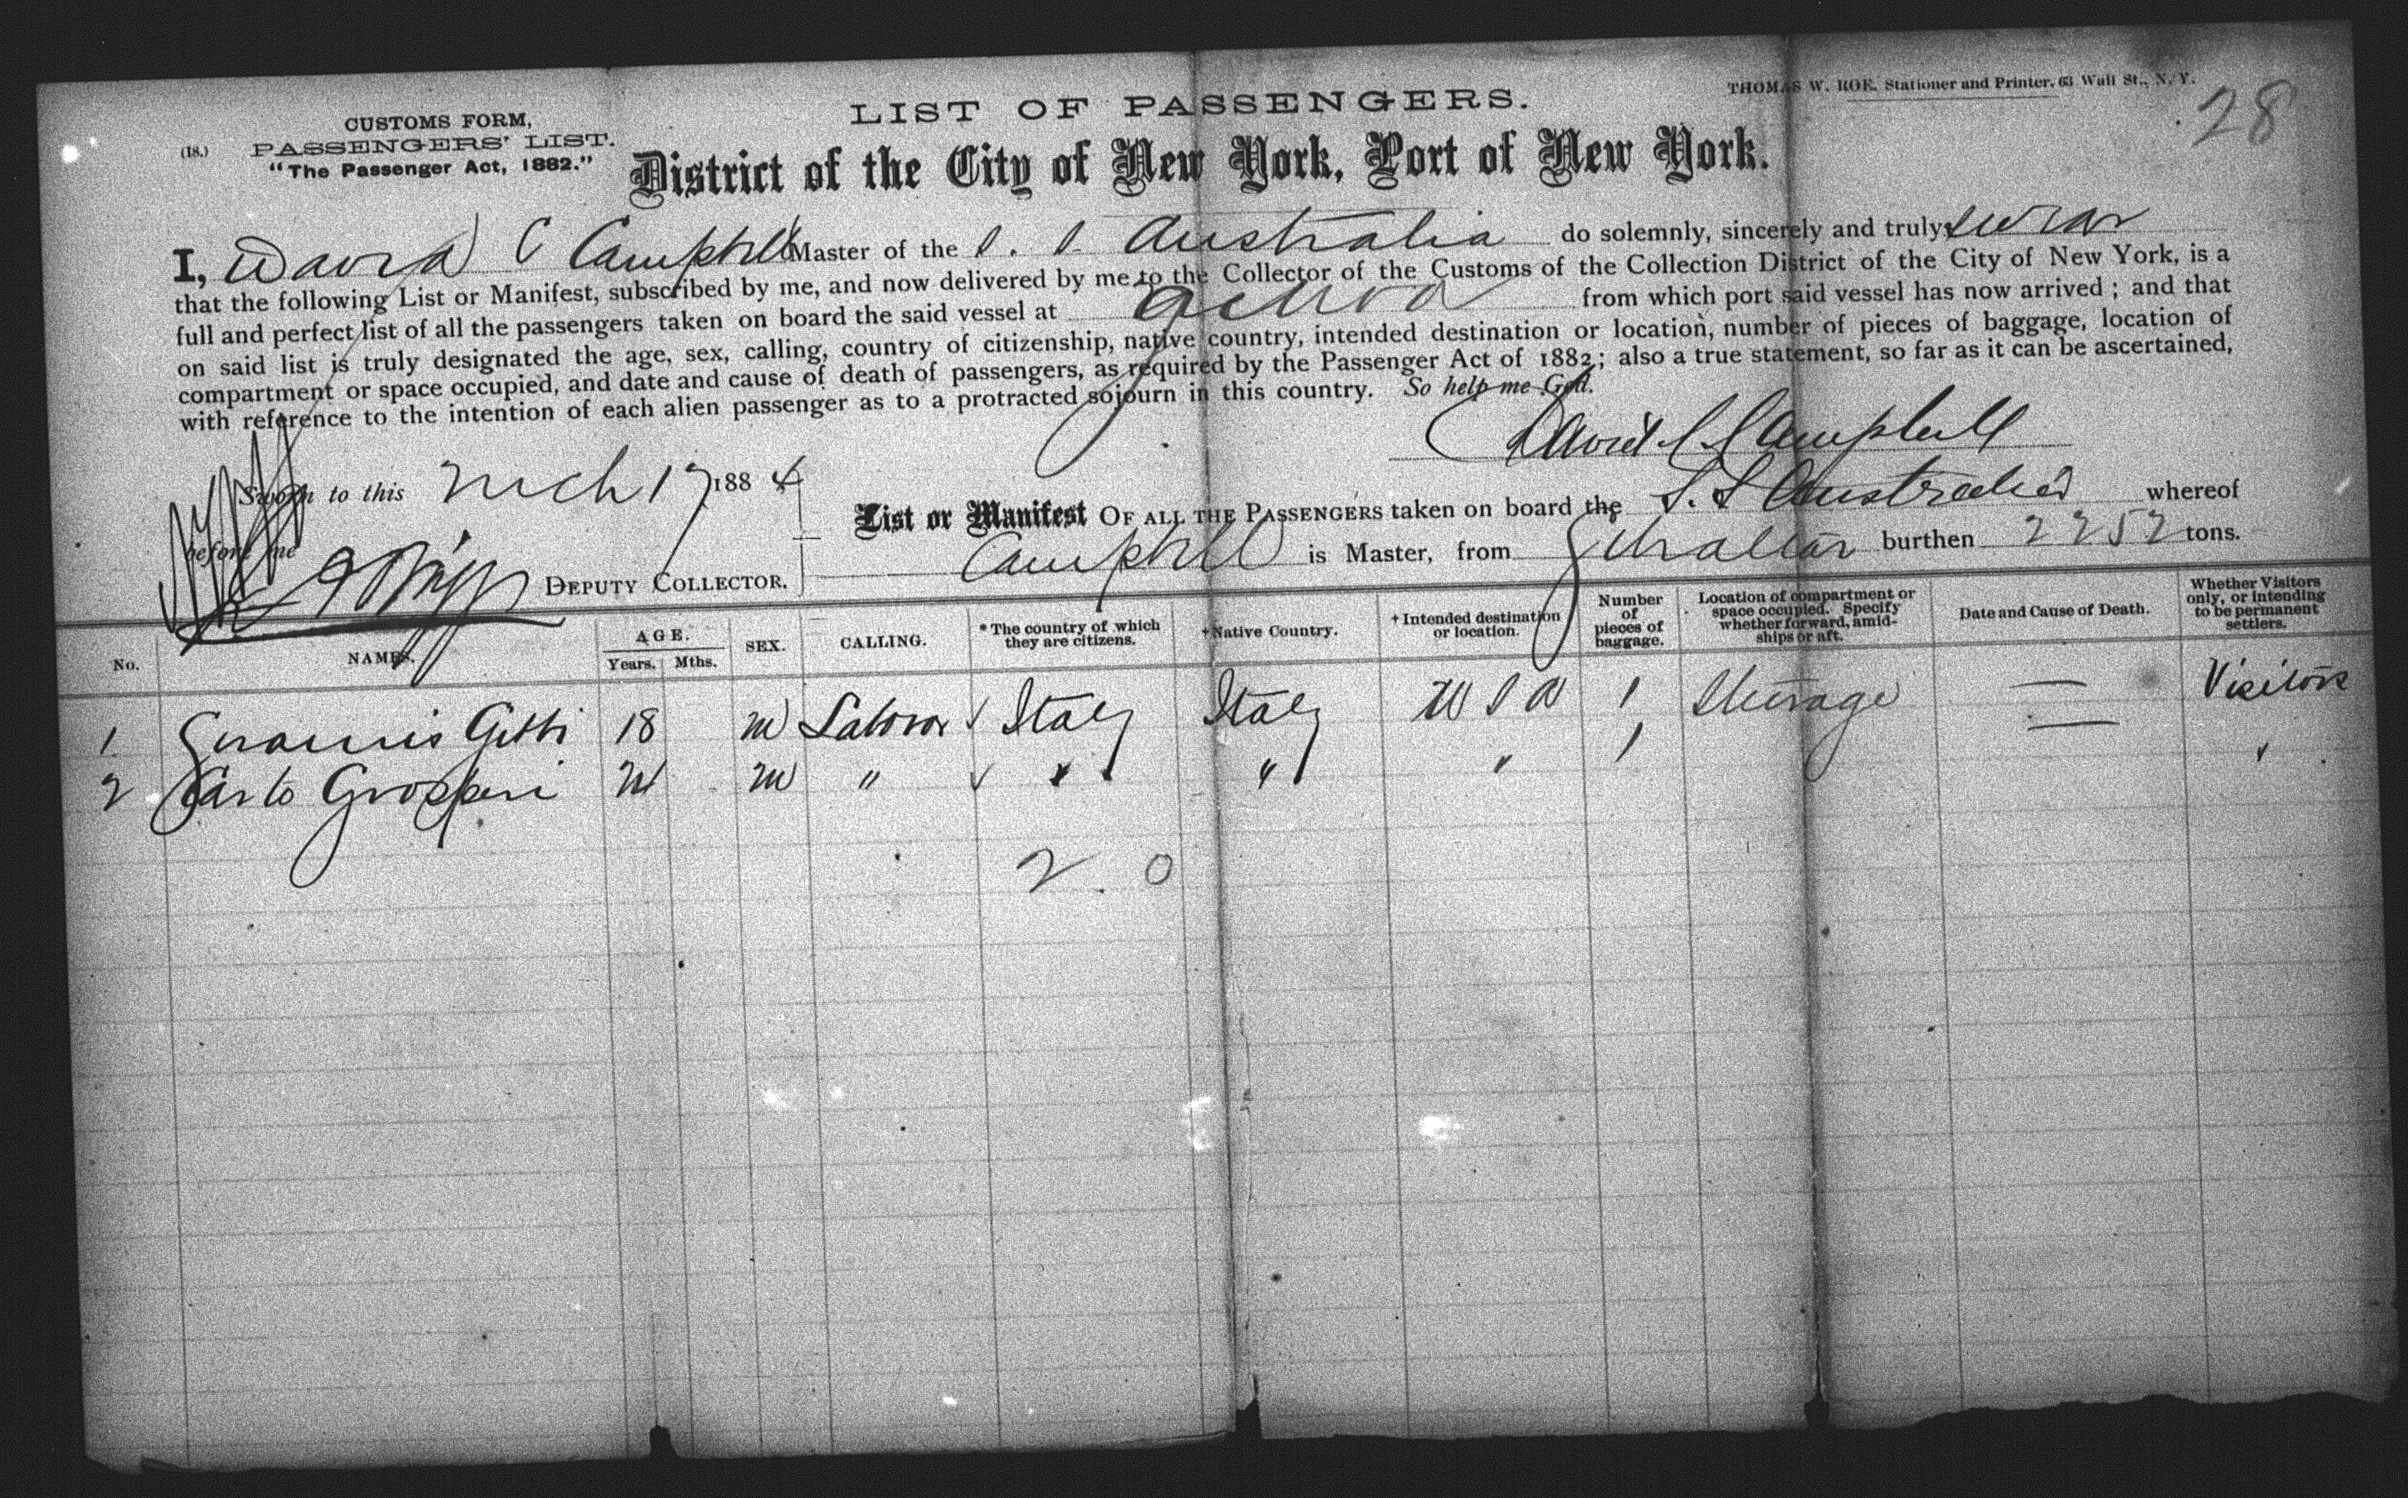 THOMAS W. ROE, Stationer and Printer, 63 Wall St., N. Y.
28
CUSTOMS FORM,
LIST OF PASSENGERS.
(18.) PASSENGERS' LIST.
"The Passenger Act, 1882."
District of the City of New York, Port of New York.
I, David C Campbell Master of the S. S. Australia do solemnly, sincerely and truly swear
that the following List or Manifest, subscribed by me, and now delivered by me to the Collector of the Customs of the Collection District of the City of New York, is a
full and perfect list of all the passengers taken on board the said vessel at Genoa from which port said vessel has now arrived; and that
on said list is truly designated the age, sex, calling, country of citizenship, native country, intended destination or location, number of pieces of baggage, location of
compartment or space occupied, and date and cause of death of passengers, as required by the Passenger Act of 1882; also a true statement, so far as it can be ascertained,
with reference to the intention of each alien passenger as to a protracted sojourn in this country. So help me God.
David C Campbell
Sworn to this Mch 17 1884
before me
DEPUTY COLLECTOR.
List or Manifest OF ALL THE PASSENGERS taken on board the S. S Australia whereof
Campbell is Master, from Gibraltar burthen 2252 tons.
No. NAMES. AGE. Years. Mths. SEX. CALLING. * The country of which they are citizens. + Native Country. + Intended destination or location. Number of pieces of baggage. Location of compartment or space occupied. Specify whether forward, amidships or aft. Date and Cause of Death. Whether Visitors only, or intending to be permanent settlers.
1 Gitti 18 m Labor ✓ Italy Italy U S A 1 Steerage — Visitors
2 Carlo Gropperi m " ✓ " " " " 1 — "
2. 0